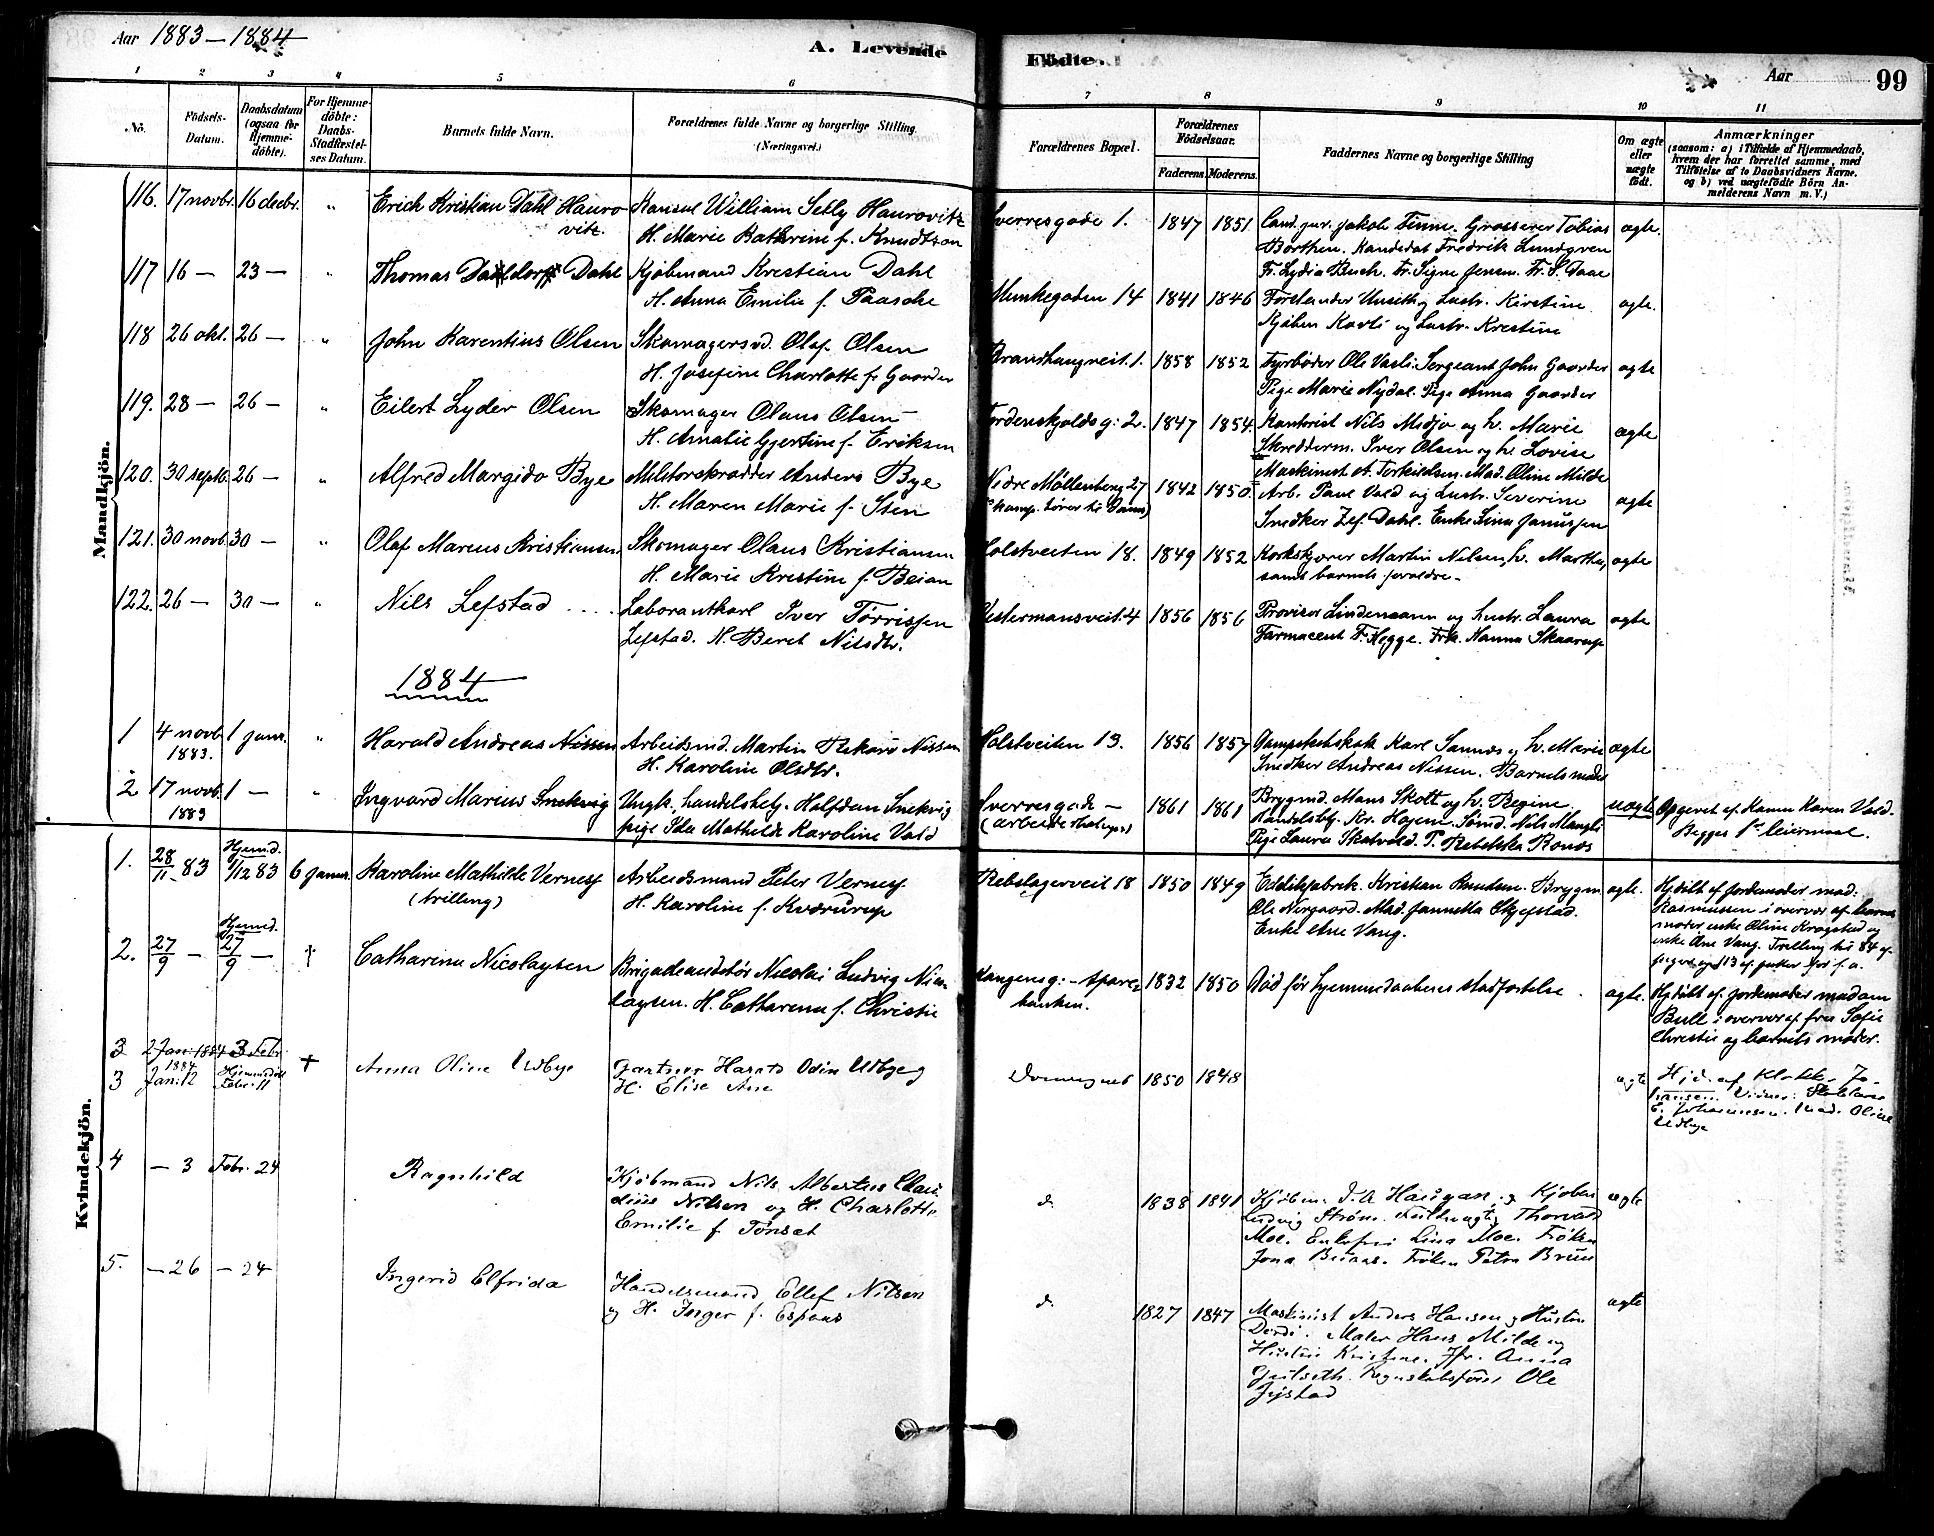 Aar 1883 – 1884
A. Levende
Födte.
Aar
99
1 2 3 4 5 6 7 8 9 10 11
No.
Födsels-Datum.
Daabsdatum (ogsaa for Hjemme-döbte).
For Hjemme-döbte: Daabs-Stadfæstel-ses Datum.
Barnets fulde Navn.
Forældrenes fulde Navne og borgerlige Stilling. (Næringsvei.)
Forældrenes Bopæl.
Forældrenes Födselsaar.
Faderens. Moderens.
Faddernes Navne og borgerlige Stilling
Om ægte eller uægte födt.
Anmærkninger
(saasom: a) i Tilfælde af Hjemmedaab,
hvem der har forrettet samme, med
Tilföielse af to Daabsvidners Navne.
og b) ved uægtefödte Börn An-
melderens Navn m. V.)
Mandkjön.
116. 17 novbr. 16 decbr. " Erich Kristian Dahl Hauro
vitz
Konsul William Selly Haurovitz
H. Marie Kathrine f. Knudtzon
Sverresgade 1. 1847 1851
Cand. jur. Jakob Finne. Grosserer Tobias
Borthen. Kandidat Fredrik Lundgren
Fr. Lydia Buch. Fr. Signe Jensen. Fr. S. Daae
ægte.
117 16 – 23 – " Thomas Dahl
Kjøbmand Kristian Dahl
H. Anna Emilie f. Paasche
Munkegaden 14 1841 1846
Forstander Unseth og hustr. Kirstine
Kjøbm Kavli og hustr. Kristine
ægte.
118 26 okt. 26 – " John Karentius Olsen
Skomagersvd. Olaf Olsen
H. Josefine Charlotte f. Gaarder
Brandhaugveit. 1. 1858 1852
Fyrbøder Ole Vasli. Sergeant John Gaarder
Pige Marie Nydal. Pige Anna Gaarder
ægte
119. 28 – 26 – " Eilert Lyder Olsen
Skomager Olaus Olsen
H. Amalie Gjertine f. Eriksen
Tordenskjoldsg: 2. 1847 1854
Kontorist Nils Midjo og h. Marie
Skrædderm. Iver Olsen og h. Lovise
ægte
120. 30 septb. 26 – " Alfred Margido Bye
Militærskrædder Anders Bye
H. Maren Marie f. Sten
Nedre Møllenberg 27
1842 1850
Maskinist A. Torkildsen. Mad. Oline Milde
Arb. Paul Vold og hustr. Severine
Snedker Zef. Dahl. Enke Lina Janussen
ægte
121. 30 novb. 30 – " Olaf Marius Kristiansen
Skomager Olaus Kristiansen
H. Marie Kristine f. Beian
Holstveiten 18. 1849 1852
Korkskjærer Martin Nilsen, h. Marthe,
samt barnets forældre –
ægte
122. 26 – 30 – " Nils Lefstad
Laborantkarl Iver Tørrissen
Lefstad. H. Beret Nilsdtr.
Vestermansveit. 4 1856 1856
Provisor Lindemann og hustr. Laura
Farmaceut F. Hegge. Frk. Hanna Skaarup
ægte
1884
1 4 novb. 1883. 1 janr. " Harald Andreas Nissen
Arbeidsmd. Martin Rikard Nissen
H. Karoline Olsdtr.
Holstveiten 13. 1856 1857
Karl Sannes og h. Marie
Snedker Andreas Nissen. Barnets moder
ægte
2 17 novb. 1883 1 – " Ingvard Marius Snekvig
Ungk. handelsbetj. Halfdan Snekvig
pige Ida Mathilde Karoline Vold
Sverresgade –
1861 1861
Brygmd. Mons Skott og h. Regine.
Handelsbtj. Kr. Hojem. Sømd. Nils
Pige Laura Skatvold. P. Rebekka Ronæs
uægte
Opgivet af Karen Vold.
Begges 1ste leiermaal.
Kvindekjön.
1. 28/11 – 83 Hjemd. 1/12 83 6 janr. Karoline Mathilde Verness
(trilling)
Arbeidsmand Peter Verness
H. Karoline f. Kværurup
Rebslagerveit 18 1850 1849
Eddikfabrik. Kristian Knudsen. Brygm
Ole Nergaard. Mad. Jannetta Skjefstad.
Enke Ane Vang.
ægte.
Hjdøbt af jordemoder mad:
Rasmussen i overvær af barnets
moder enke Oline Krogstad og
enke Ane Vang. Trilling til 84 af
piger og 113 af gutter for f. a.
2. 27/9 – Hjemd. 27/9 – † Catharina Nicolaysen
Brigadeauditør Nicolai Ludvig Nico
laysen. H. Catharina f. Christie
Kongensg: – Spare-
banken. 1832 1850
Død før hjemmedaabens stadfæstelse.
ægte.
Hjdøbt af jordemoder madam
Bull i overvær af frue Sofie
Christie og barnets moder.
3 2 Jan: 1884 3 Febr.
3 1884 Jan: 12 Hjemmedøbt Febr. 11 † Anna Oline Udbye
Gartner Harald Odin Udbye og
H. Elise Ane
1850 1848
ægte
Hjd. af Klokk. Jo-
hansen. Vidner:
E. Johannesen. Mad. Oline
Udbye
4 – 3 Febr. 24 Ragnhild
Kjøbmand Nils Albertus Clau
dius Nilsen og H. Charlotte
Emilie f. Tønset
d. 1838 1841
Kjøbm. I. A Haugan og Kjøbm
Ludvig Strøm. Fuldmægtig Thorvald
Moe. Enkefru Lina Moe. Frøken
Jona Bruus. Frøken Petra Bruus
ægte
5. – 26 – 24 Ingerid Elfrida
Handelsmand Ellef Nilsen
og H. Inger f. Espaas
d. 1827 1847
Maskinist Anders Hansen og Hustru
Dordi. Maler Hans Milde og
Hustru Kristine. Jfr. Anna
Gulseth. Regnskabsfører Ole
ægte